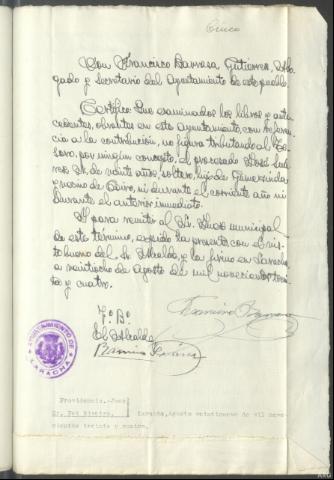 Cinco
Don Francisco Barrosa Gutierrez, Abo-
gado y Secretario del Ayuntamiento de este pueblo.
Certifico: Que examinados los libros y ante-
cedentes, obrantes en este Ayuntamiento, con referen-
cia a la contribución, no figura tributando al Te-
soro, por ningún concepto, el procesado José
de veinte años, soltero, hijo de Gumersinda,
y vecino de Coiro, ni durante el corriente año ni
durante el anterior inmediato.
Y para remitir al Sr. Juez municipal
de este término, expido la presente con el vis-
to bueno del Sr. Alcalde, y la firmo en Laracha
a veintiocho de Agosto de mil novecientos trein-
ta y cuatro.
Vº Bº
El Alcalde
AYUNTAMIENTO DE
LARACHA
Providencia.-Juez
Laracha, Agosto veintinueve de mil nove-
cientos treinta y cuatro.